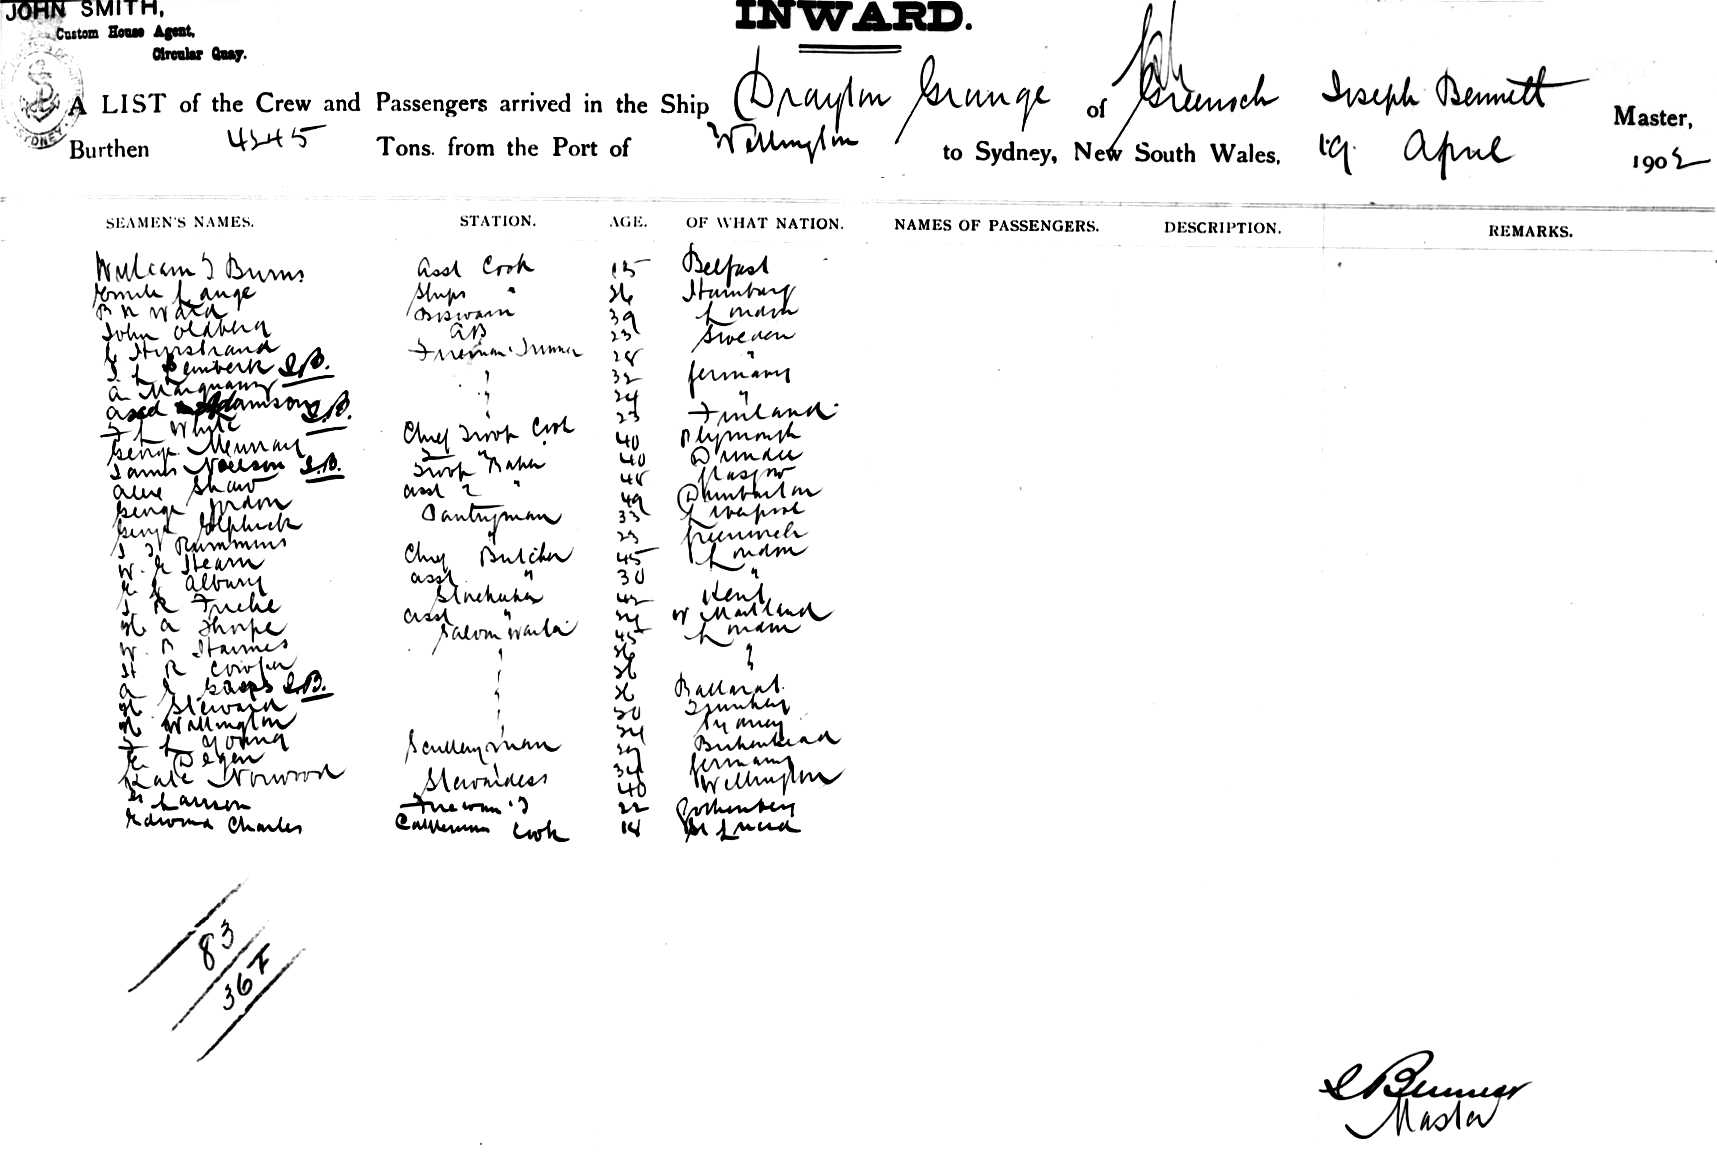 JOHN SMITH,
Custom House Agent,
Circular Quay.
INWARD.
A LIST of the Crew and Passengers arrived in the Ship Drayton Grange of Joseph Bennett Master,
Burthen Tons. from the Port of Wellington to Sydney, New South Wales, 19 April 1902
SEAMEN'S NAMES. STATION. AGE. OF WHAT NATION. NAMES OF PASSENGERS. DESCRIPTION. REMARKS.
William J Burns asst Cook Belfast
Emile Lange Ships " 36 Hamburg
B N Ward Boswain 39 London
John Oldberg AB 23 Sweden
Fireman Trimmer 28 "
J L J.B. " 32 Germany
A " 24 "
Adamson J.B. " 23 Finland
F L White Chief Troop Cook 40 Plymouth
George Murray " 40 Dundee
James J.B. Troop Baker 48 Glasgow
Alex Shaw asst 2 " 49 Dumbarton
George Gordon Pantryman 33 Liverpool
George " 23 Greenwich
J J Rummins Chief Butcher 45 London
W. E Hearn asst " 30 "
E J Albury Storekeeper 42 Kent
J R asst " 24 W Maitland
H A Thorpe Saloon Waiter 45 London
W. B Haimes " 36 "
H R Cowper " 36 "
A E J.B. " 36 Ballarat
H Steward " 30
H Wallington " 24 Sydney
F L Young Sculleryman 29 Birkenhead
E Degen 34 Germany
Kate Norwood Stewardess 40 Wellington
Larson Fireman T 22 Gothenberg
Edward Charles Cook 18 St Lucia
83
36 F
J Bennett
Master